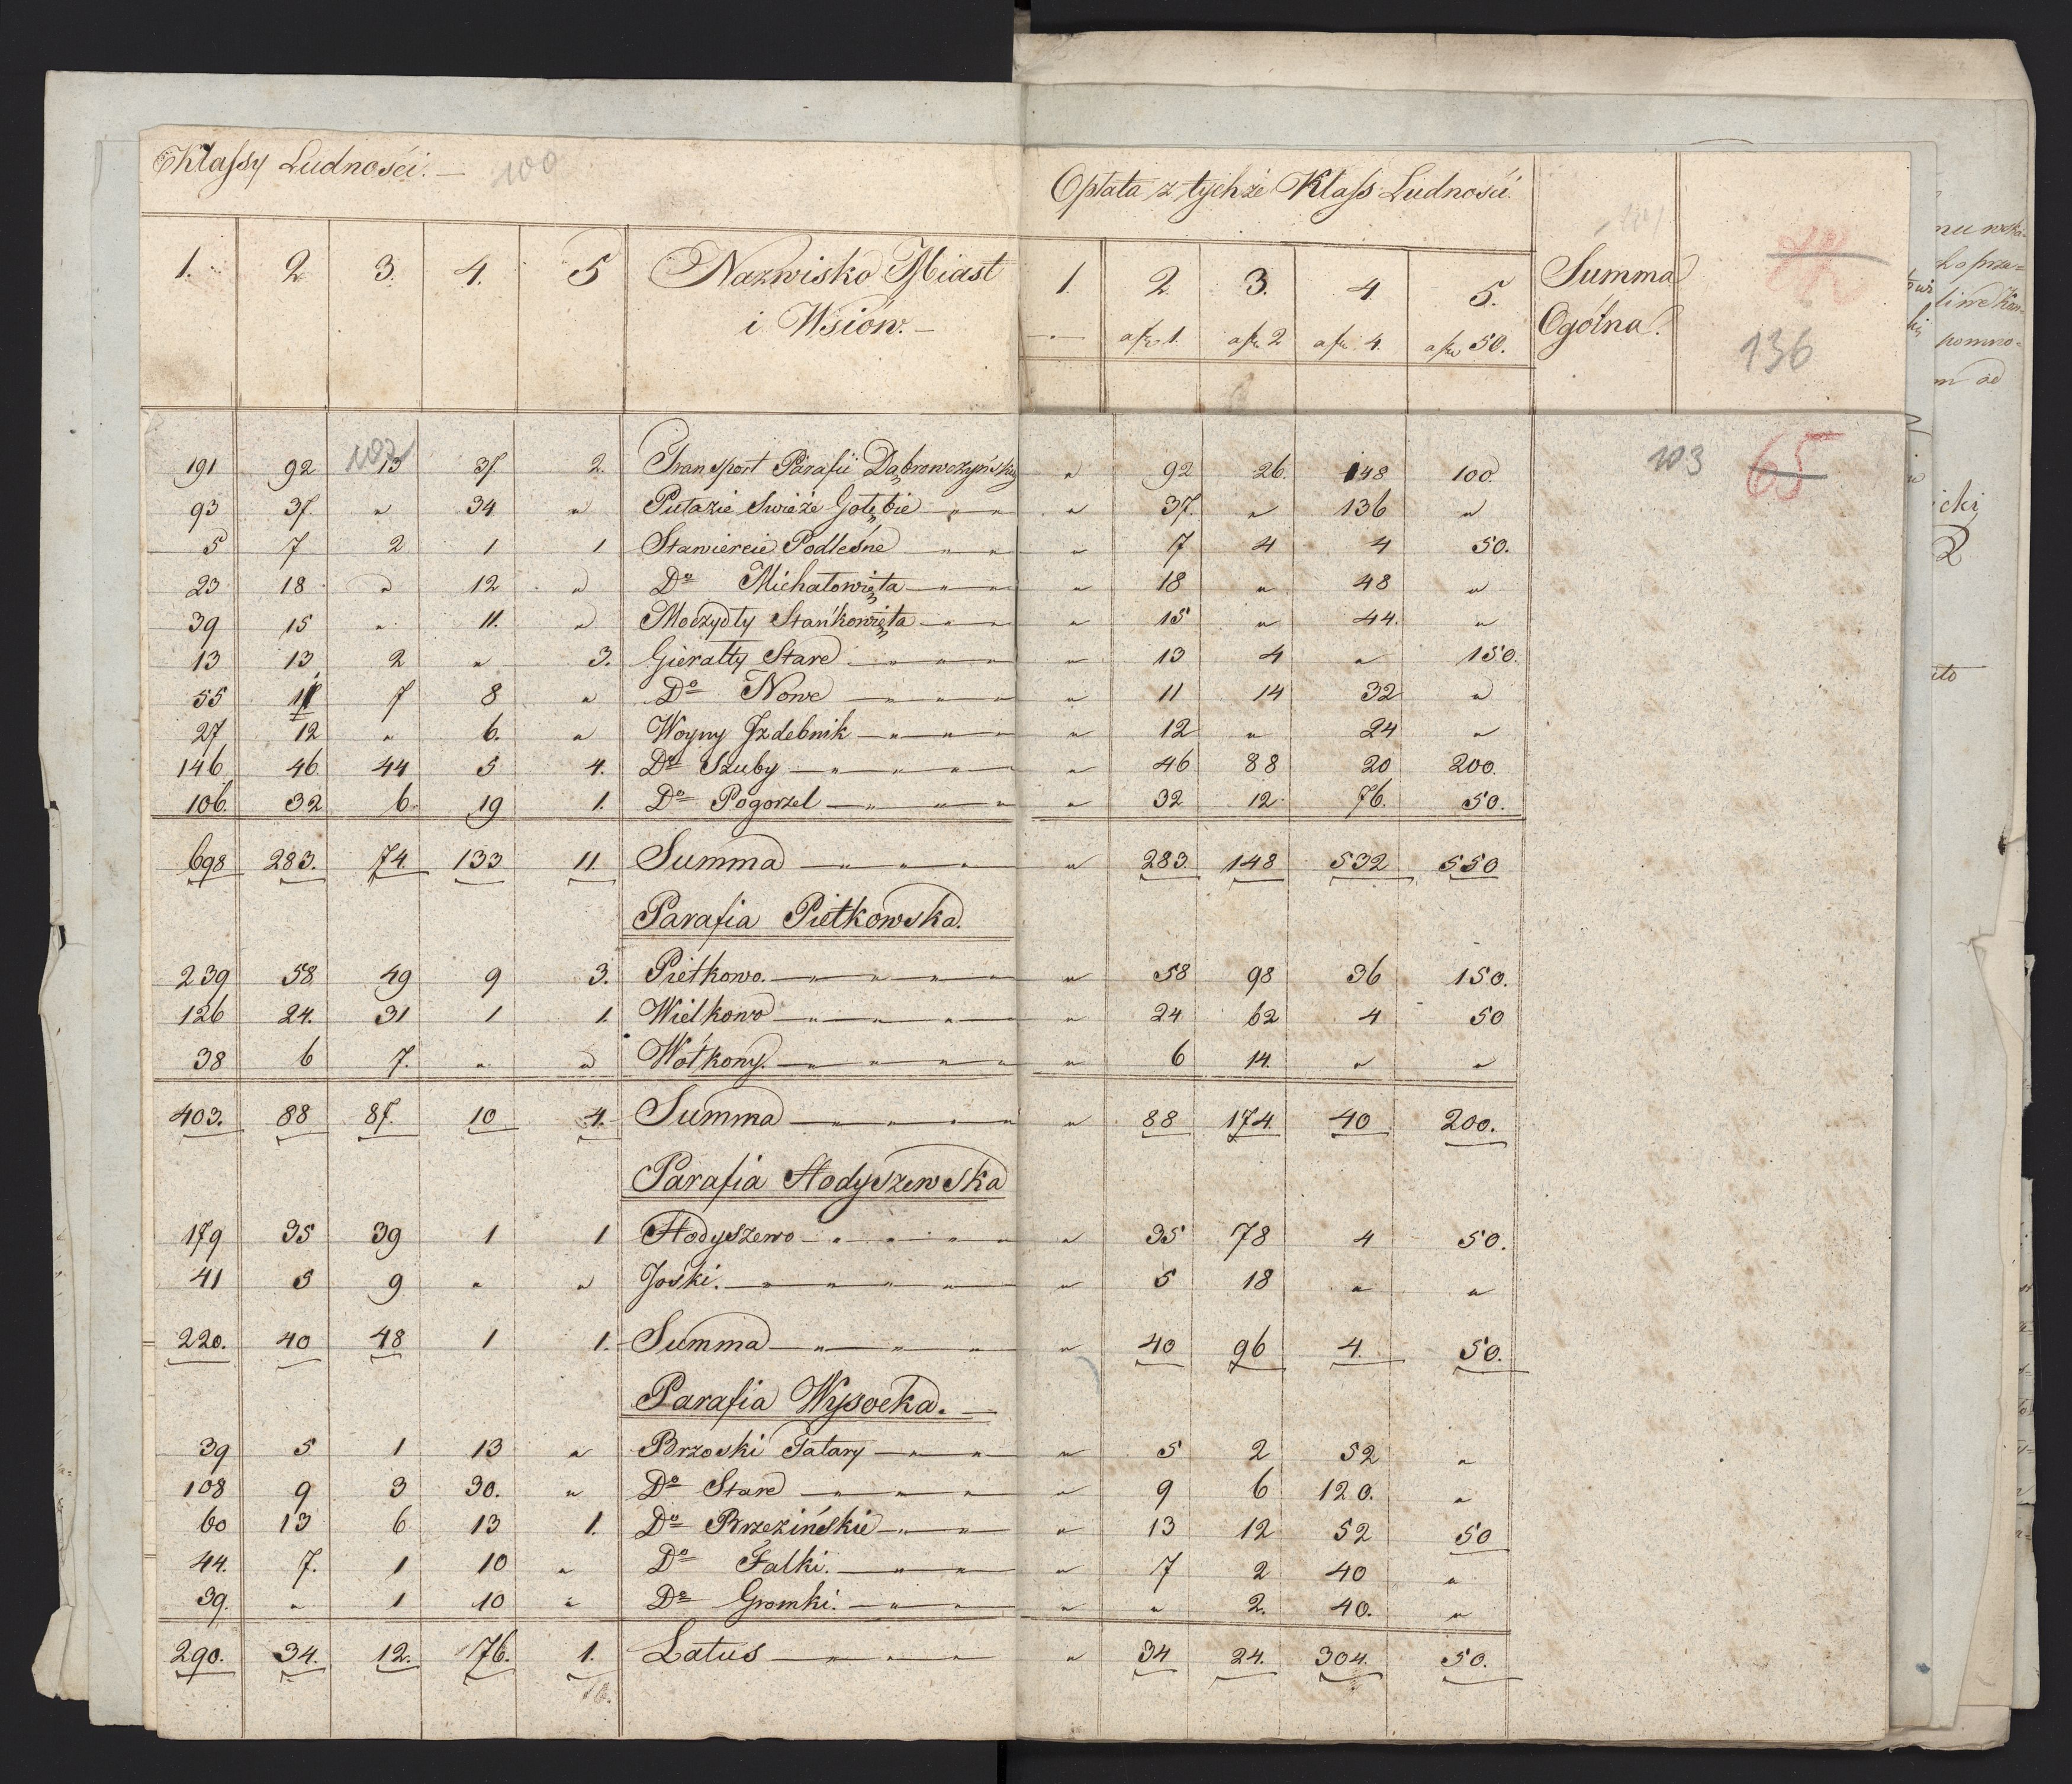 Klassy Ludności. — 100
Opłata z tychże Klass Ludności.
1. 2 3. 4. 5 Nazwisko Miast i Wsiów. — 1. 2. 3. 4 5. Summa Ogólna.
a fl 1. a fl 2 a fl 4. a fl 50.
136
102 103 65
191 92 13 37. 2. Transport Parafii Dąbrowczyńskiey " 92 26. 148 100.
93 37. " 34 " Putazie Swieże Gołębie " " " 37. " 136 "
5 7 2 1 1 Stawiereie Podleśne " " " 7 4 4 50.
23 18 " 12 " Do Michałowięta " " " 18 " 48 "
39 15 " 11. " Moczydły Stańkowięta " " " 15 " 44. "
13 13 2 " 3. Gierałty Stare " " " " 13 4 " 150.
55 11 7 8 " Do Nowe " " " " 11 14 32 "
27 12 " 6. " Woyny Izdebnik " " " " 12 " 24 "
146 46 44 5 4. Do Szuby " " " " 46 88 20 200.
106. 32 6. 19 1. Do Pogorzel " " " " 32 12. 76. 50.
698 283. 74. 133 11. Summa " " " " 283. 148 532 550
Parafia Pietkowska.
239 58 49 9 3. Pietkowo. " " " " " 58 98 36 150.
126 24. 31 1 1. Wielkowo " " " " 24 62 4 50
38 6 7. " " Wołkony. " " " " " 6 14. " "
403. 88 87. 10 4. Summa " " " " " 88 174. 40 200.
Parafia Hodyszewska
179 35 39 1 1 Hodyszewo " " " " " 35 78 4 50.
41 5 9 " " Jośki. " " " " " 5 18 " "
220. 40 48 1 1. Summa " " " " 40 96 4. 50.
Parafia Wysocka. —
39 5 1 13 " Brzoski Tatary " " " 5 2 52 "
108 9 3 30. " Do Stare " " " " 9 6 120. "
60 13 6 13 1. Do Brzezińskie " " " 13 12 52 50
44. 7. 1 10 " Do Falki. " " " 7 2 40 "
39. " 1 10 " Do Gromki. " " " " 2. 40. "
290. 34. 12. 76. 1. Latus " " " " 34 24. 304. 50.